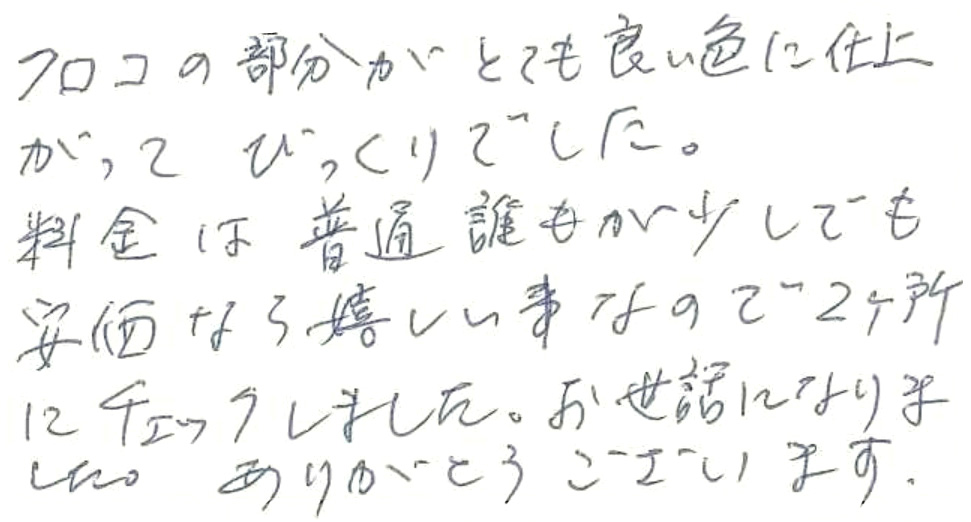 フロコの部分がとても良い色に仕上
がって びっくりでした。
料金は 普通 誰もが少しでも
安価なら嬉しい事なので2ヶ所
にチェックしました。お世話になりま
した。 ありがとうございます.